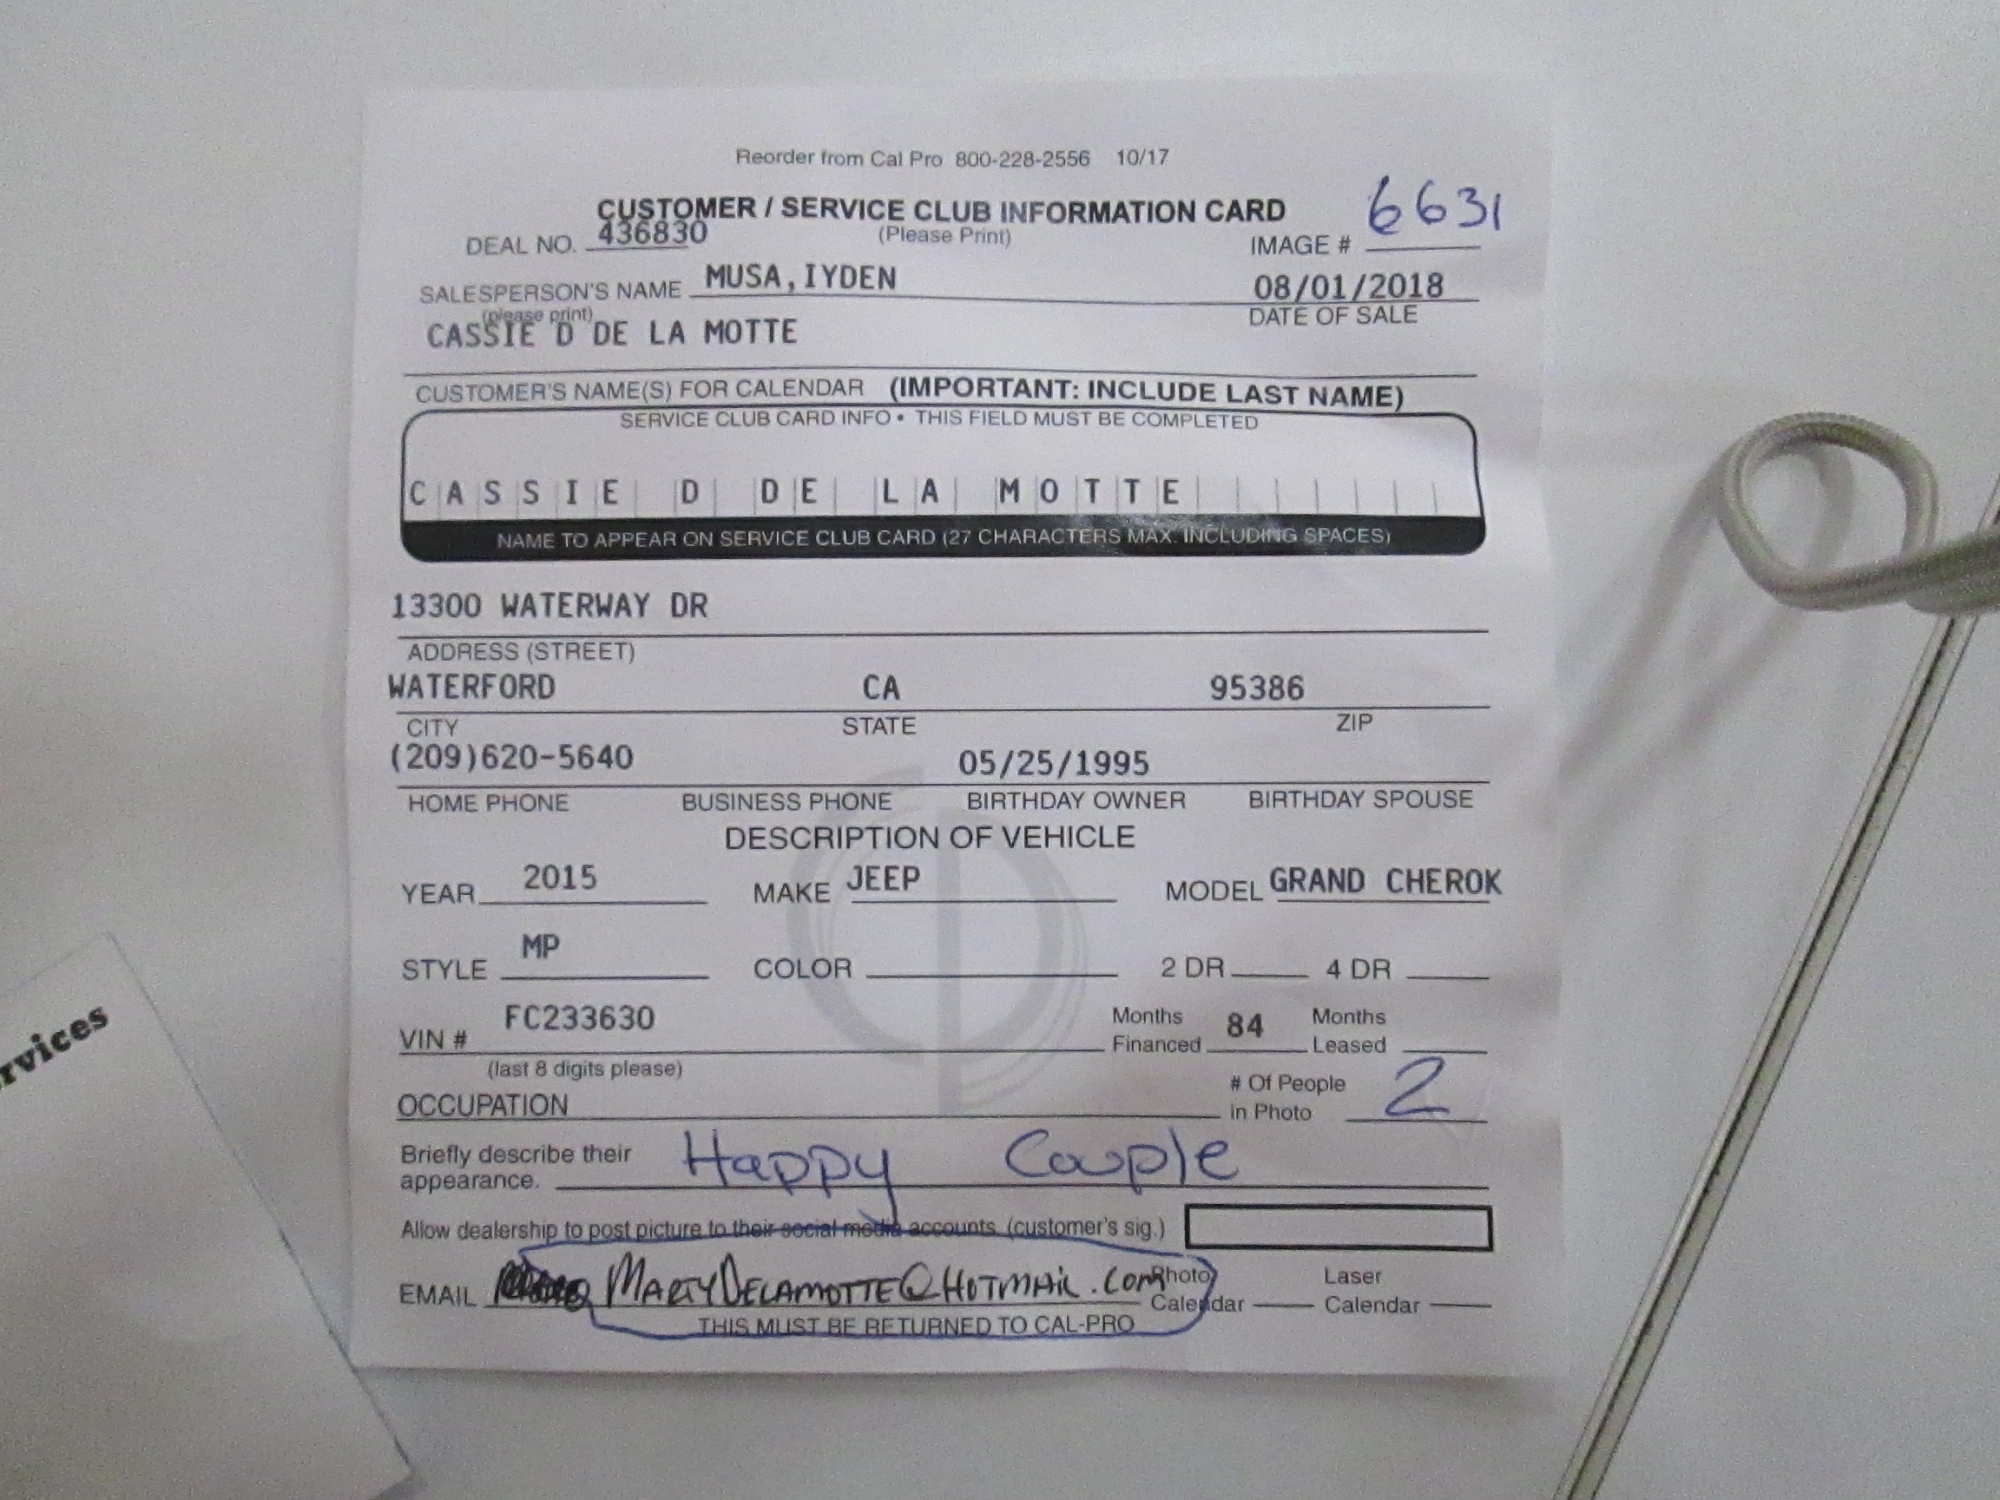 Reorder from Cal Pro 800-228-2556 10/17
CUSTOMER / SERVICE CLUB INFORMATION CARD
(Please Print)
DEAL NO. 436830 IMAGE # 6631
SALESPERSON'S NAME MUSA,IYDEN 08/01/2018
(please print) DATE OF SALE
CASSIE D DE LA MOTTE
CUSTOMER'S NAME(S) FOR CALENDAR (IMPORTANT: INCLUDE LAST NAME)
SERVICE CLUB CARD INFO • THIS FIELD MUST BE COMPLETED
CASSIE D DE LA MOTTE
NAME TO APPEAR ON SERVICE CLUB CARD (27 CHARACTERS MAX. INCLUDING SPACES)
13300 WATERWAY DR
ADDRESS (STREET)
WATERFORD CA 95386
CITY STATE ZIP
(209)620-5640 05/25/1995
HOME PHONE BUSINESS PHONE BIRTHDAY OWNER BIRTHDAY SPOUSE
DESCRIPTION OF VEHICLE
YEAR 2015 MAKE JEEP MODEL GRAND CHEROK
STYLE MP COLOR 2 DR 4 DR
VIN # FC233630 Months Financed 84 Months Leased
(last 8 digits please)
OCCUPATION # Of People in Photo 2
Briefly describe their appearance. Happy Couple
Allow dealership to post picture to their social media accounts (customer's sig.)
EMAIL MARTYDELAMOTTE@HOTMAIL.COM Photo Calendar Laser Calendar
THIS MUST BE RETURNED TO CAL-PRO
rvices